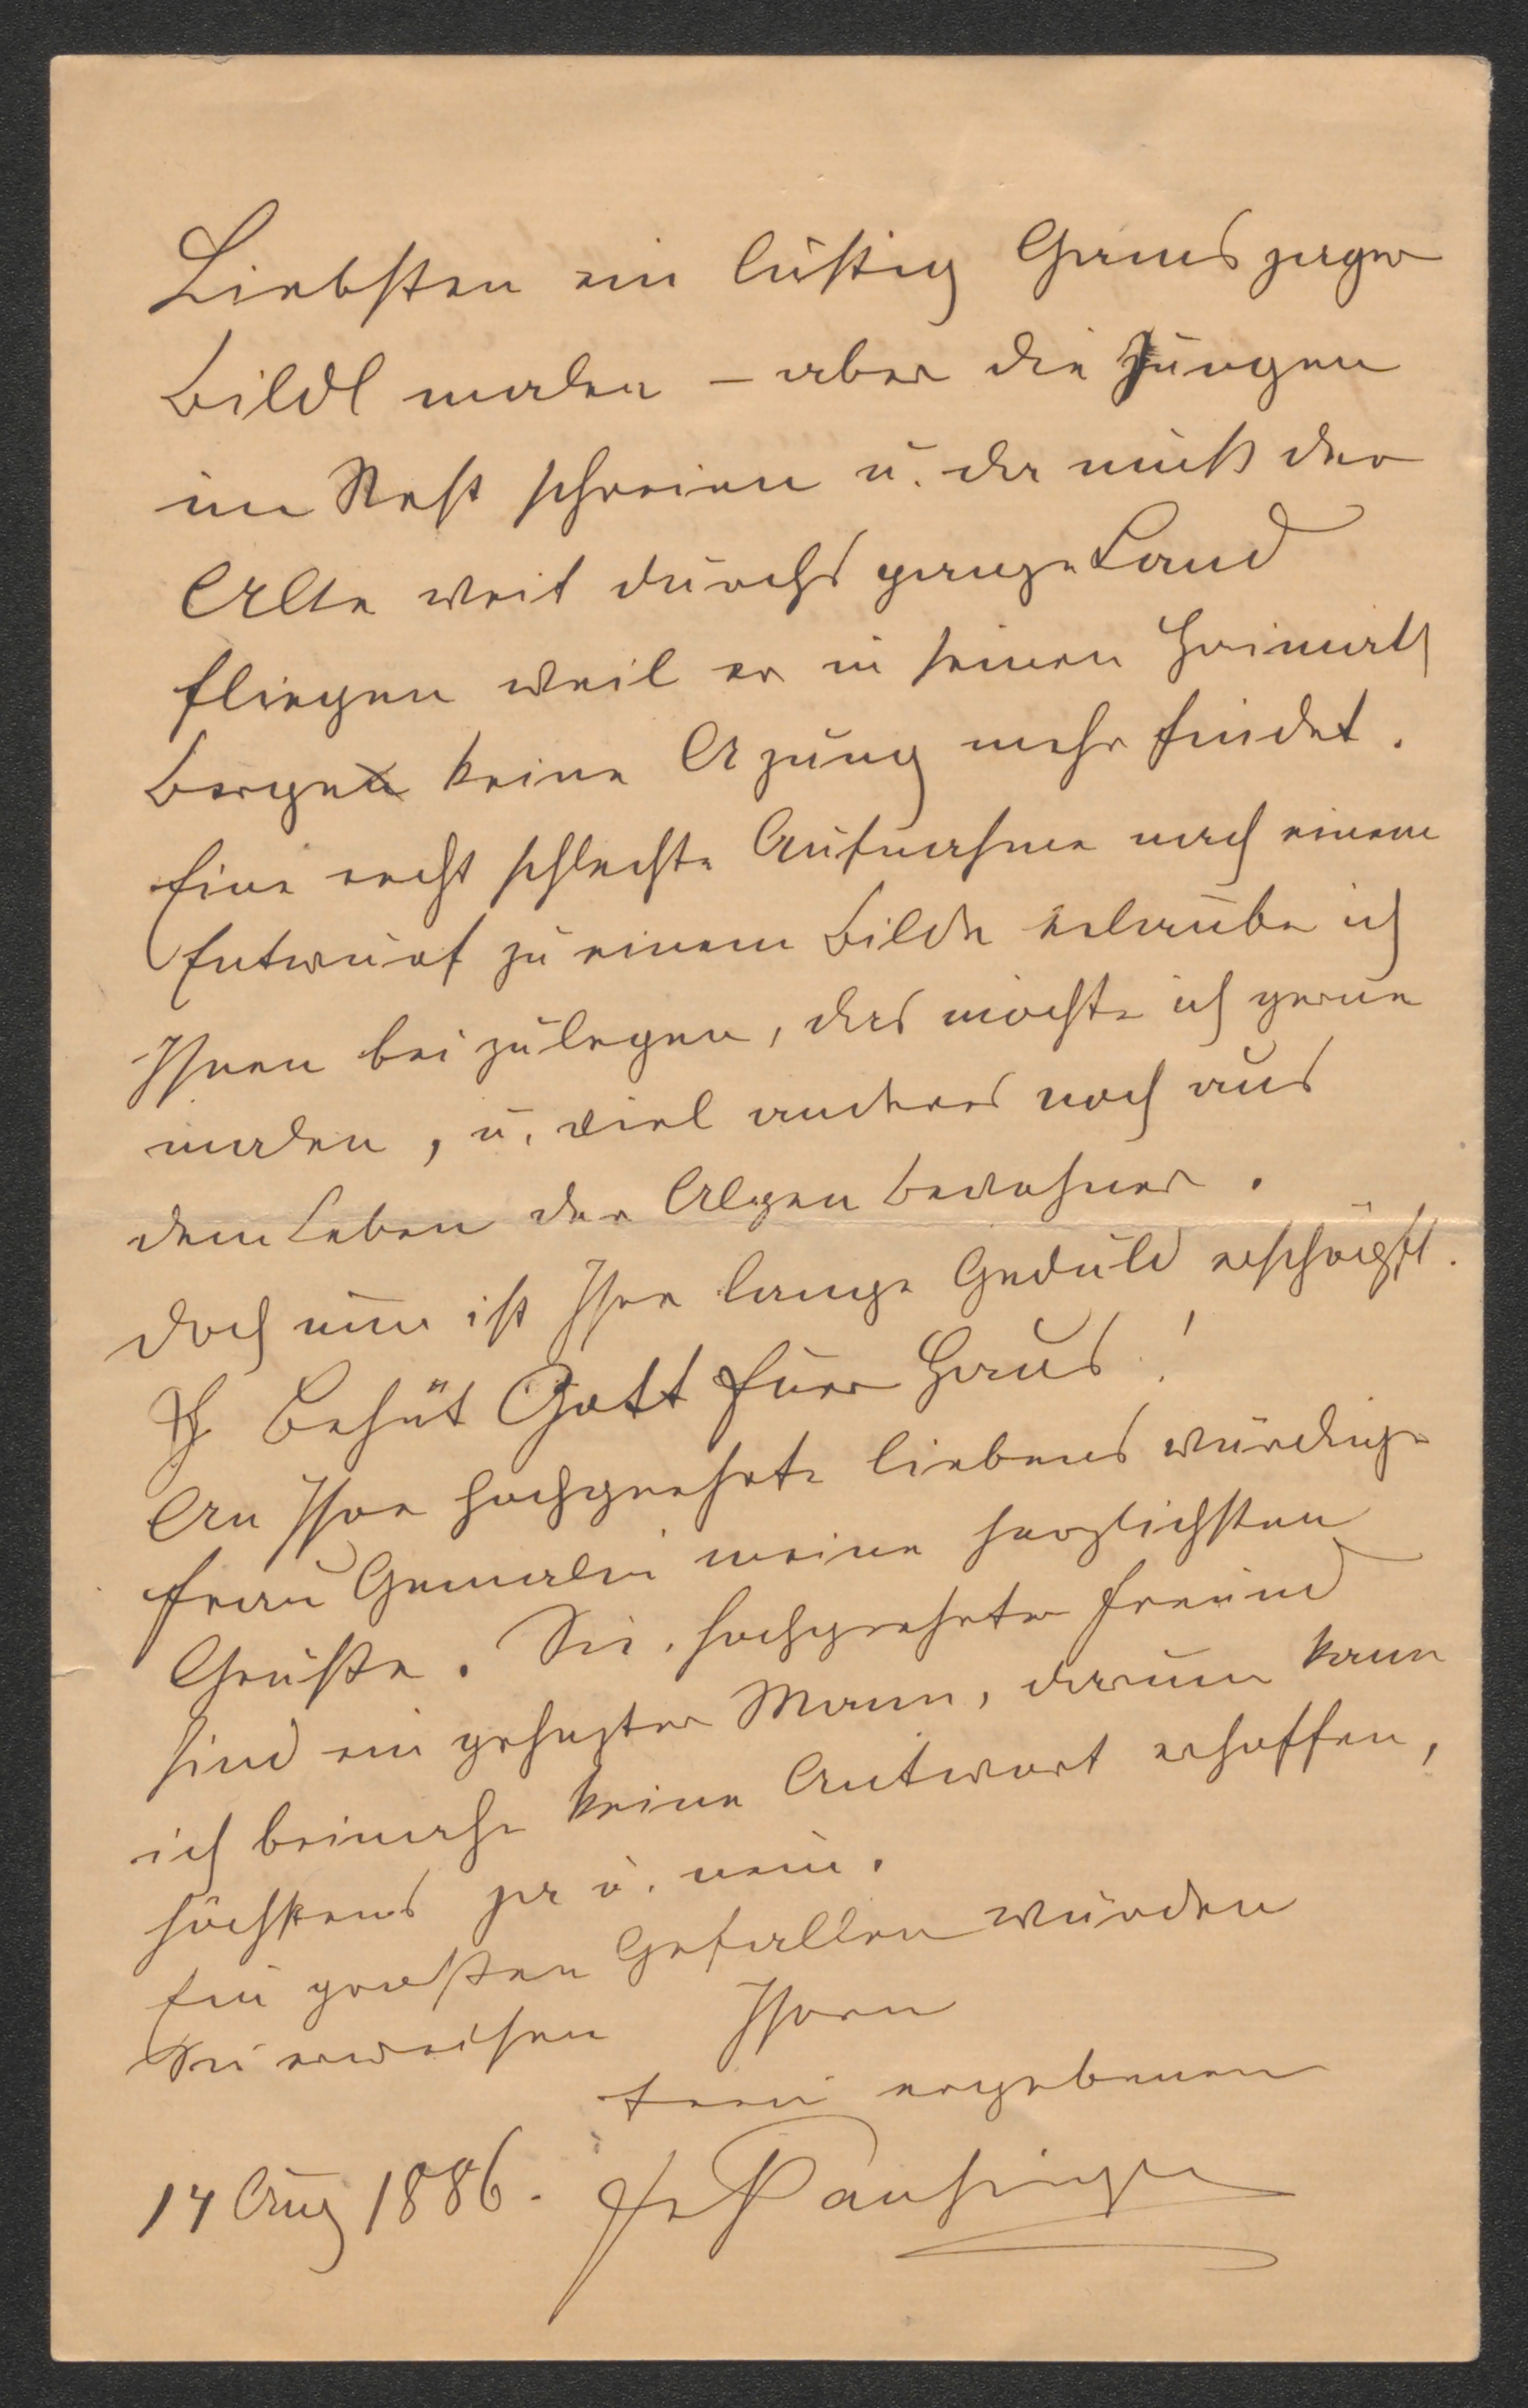 Liebsten ein lustig Gamsjager
Bildl malen – aber die Jungen
im Nest schreien u. da muß der
Alte weit durchs ganze Land
fliegen weil er in seinen Heimath
Bergen keine Azung mehr findet.
Eine recht schlechte Aufnahme nach einem
Entwurf zu einem Bilde erlaube ich
Ihnen beizulegen, das möchte ich gerne
malen, u. viel anderes noch aus
dem Leben der Alpen bewohner.
Doch nun ist Ihre lange Geduld erschöpft.
Behüt Gott Euer Haus!
An Ihre hochgeehrte liebens würdige
Frau Gemalin meine herzlichsten
Grüße. Sie, hochgeehrter Freund
sind ein gehezter Mann, darum kann
ich beinahe keine Antwort erhoffen,
höchstens ja u. nein.
Ein großen Gefallen würden
Sie erweisen Ihren
treu ergebenen
14 Aug 1886. Pausinger